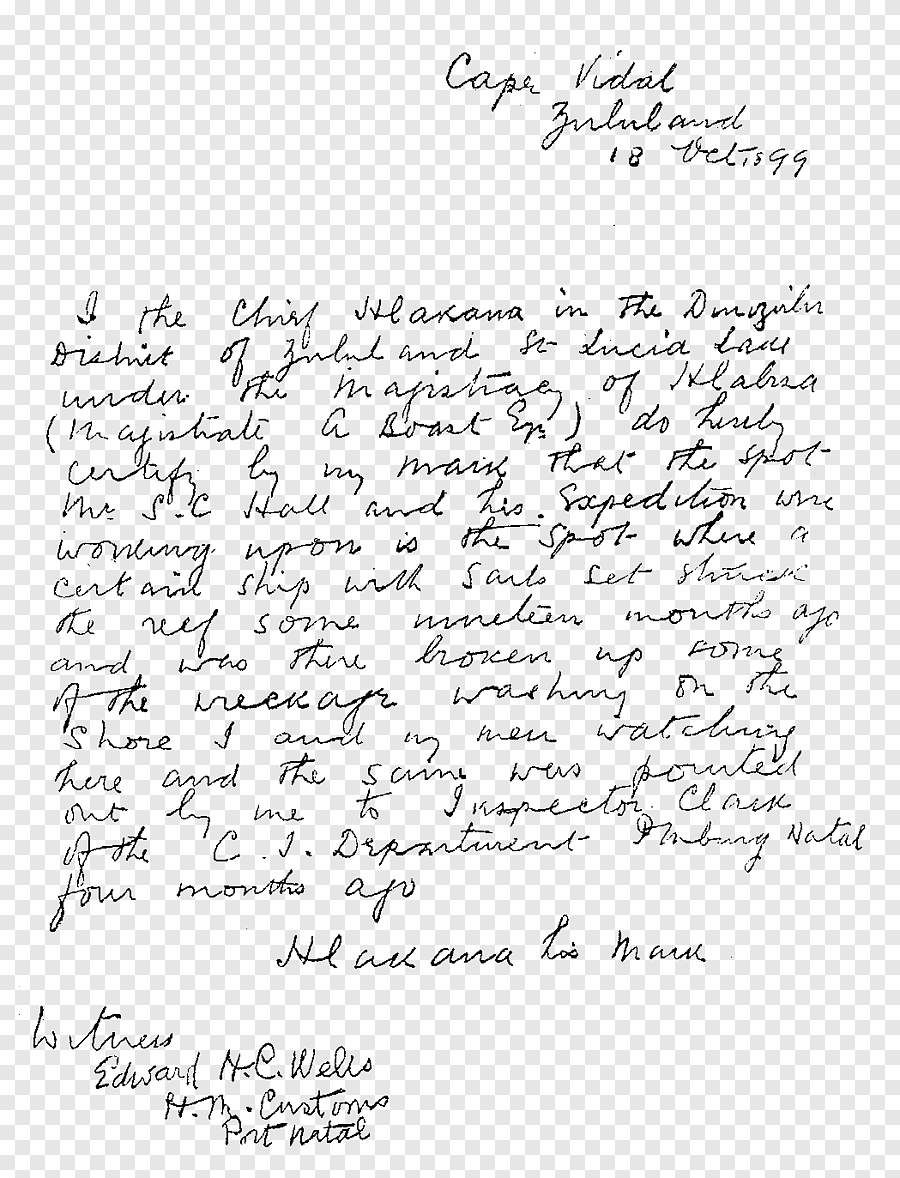 Cape Vidal
Zululand
18 Oct, 1899
I the Chief Hlakana in the
District of Zululand St Lucia Lake
under the Magistracy of Hlabisa
(Magistrate A Boast Esq.) do hereby
certify by my mark that the spot
Mr S.C Hall and his Expedition were
working upon is the spot where a
certain ship with sails set struck
the reef some nineteen months ago
and was there broken up some
of the wreckage washing on the
Shore I and my men watching
here and the same was pointed
out by me to Inspector Clark
of the C.I. Department PMburg Natal
four months ago
Hlakana his mark
Witness
Edward H.C. Wells
H.M. Customs
Port Natal